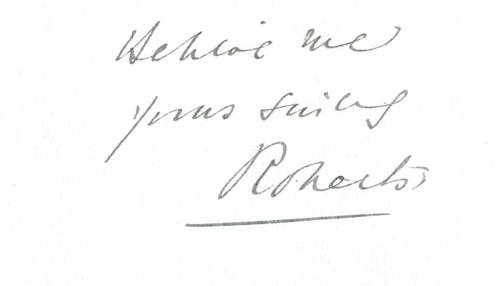 Believe me
yours sincerely
Roberts